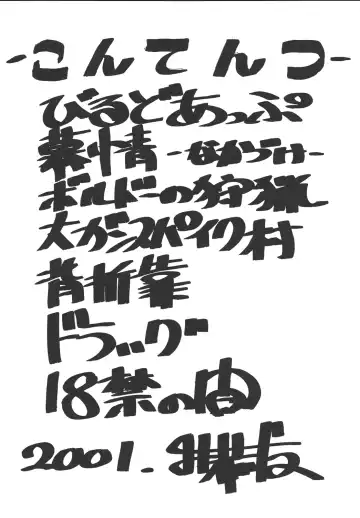 -こんてんつ-
びるどあっぷ
慕情 -なかづけ-
ボルドーの狩猟
大ガンスパイク村
背折靠
ドラッグ
18禁の間
2001.